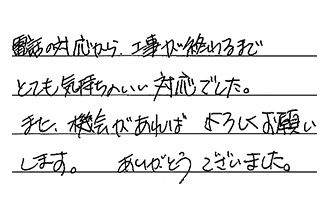 電話の対応から、工事が終わるまで
とても気持ちのいい対応でした。
また、機会があれば よろしくお願い
します。 ありがとうございました。